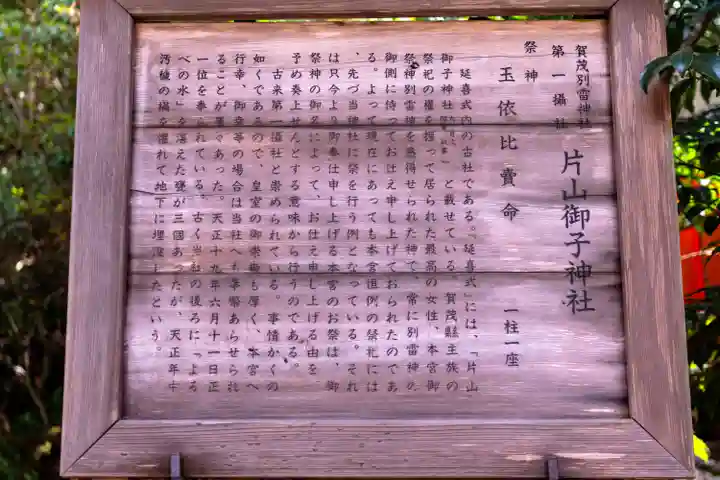 賀茂別雷神社
第一攝社
片山御子神社
祭神
玉依比賣命 一柱一座
延喜式内の古社である。『延喜式』には、「片山
御子神社 」と載せている。賀茂縣主族の
祭祀の權を握って居られた最高の女性、本宮御
祭神別雷神を感得せられた神で、常に別雷神の
御側に侍ってお仕え申し上げておられたのであ
る。よって現在にあっても本宮恒例の祭礼には
、先づ当神社に祭を行う例となっている。それ
は只今より御奉仕申し上げる本宮のお祭は、御
祭神の御名によって、お仕え申し上げる由を
予め奏上せんとする意味から行うのである。
古来第一攝社と崇められている。事情かくの
如くであるので、皇室の御崇敬も厚く、本宮へ
行幸、御幸等の場合は当社へも奉幣あらせられ
ることが屡々あった。天正十九年六月十一日正
一位を奉られている。古く当社の後ろに「よる
べの水」を湛えた甕が三個あったが、天正年中
汚穢の禍を懼れて地下に埋没したという。